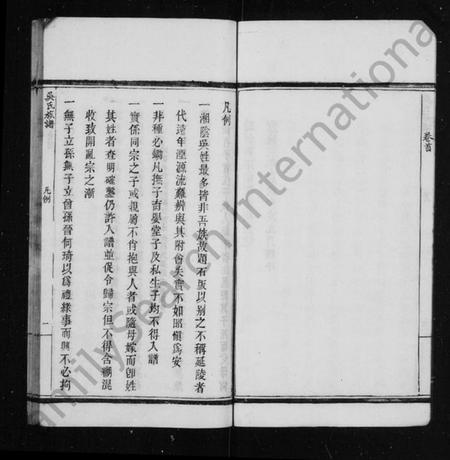 卷首
凡例
一湘陰吳姓最多皆非吾族故題石阪以別之不稱延陵者
代遠年湮源流難辨與其附會失實不如昭慎為安
一非種必鋤凡撫子育嬰堂子及私生子均不得入譜
一實係同宗之子或親房不肖抱與人者或隨母嫁而卽姓
其姓者查明確鑿仍許入譜並促令歸宗但不得含糊混
收致開亂宗之漸
一無子立孫無子立曾孫晉何琦以為禮緣事而興不必拘
吳氏族譜
凡例
一
FamilySearch International